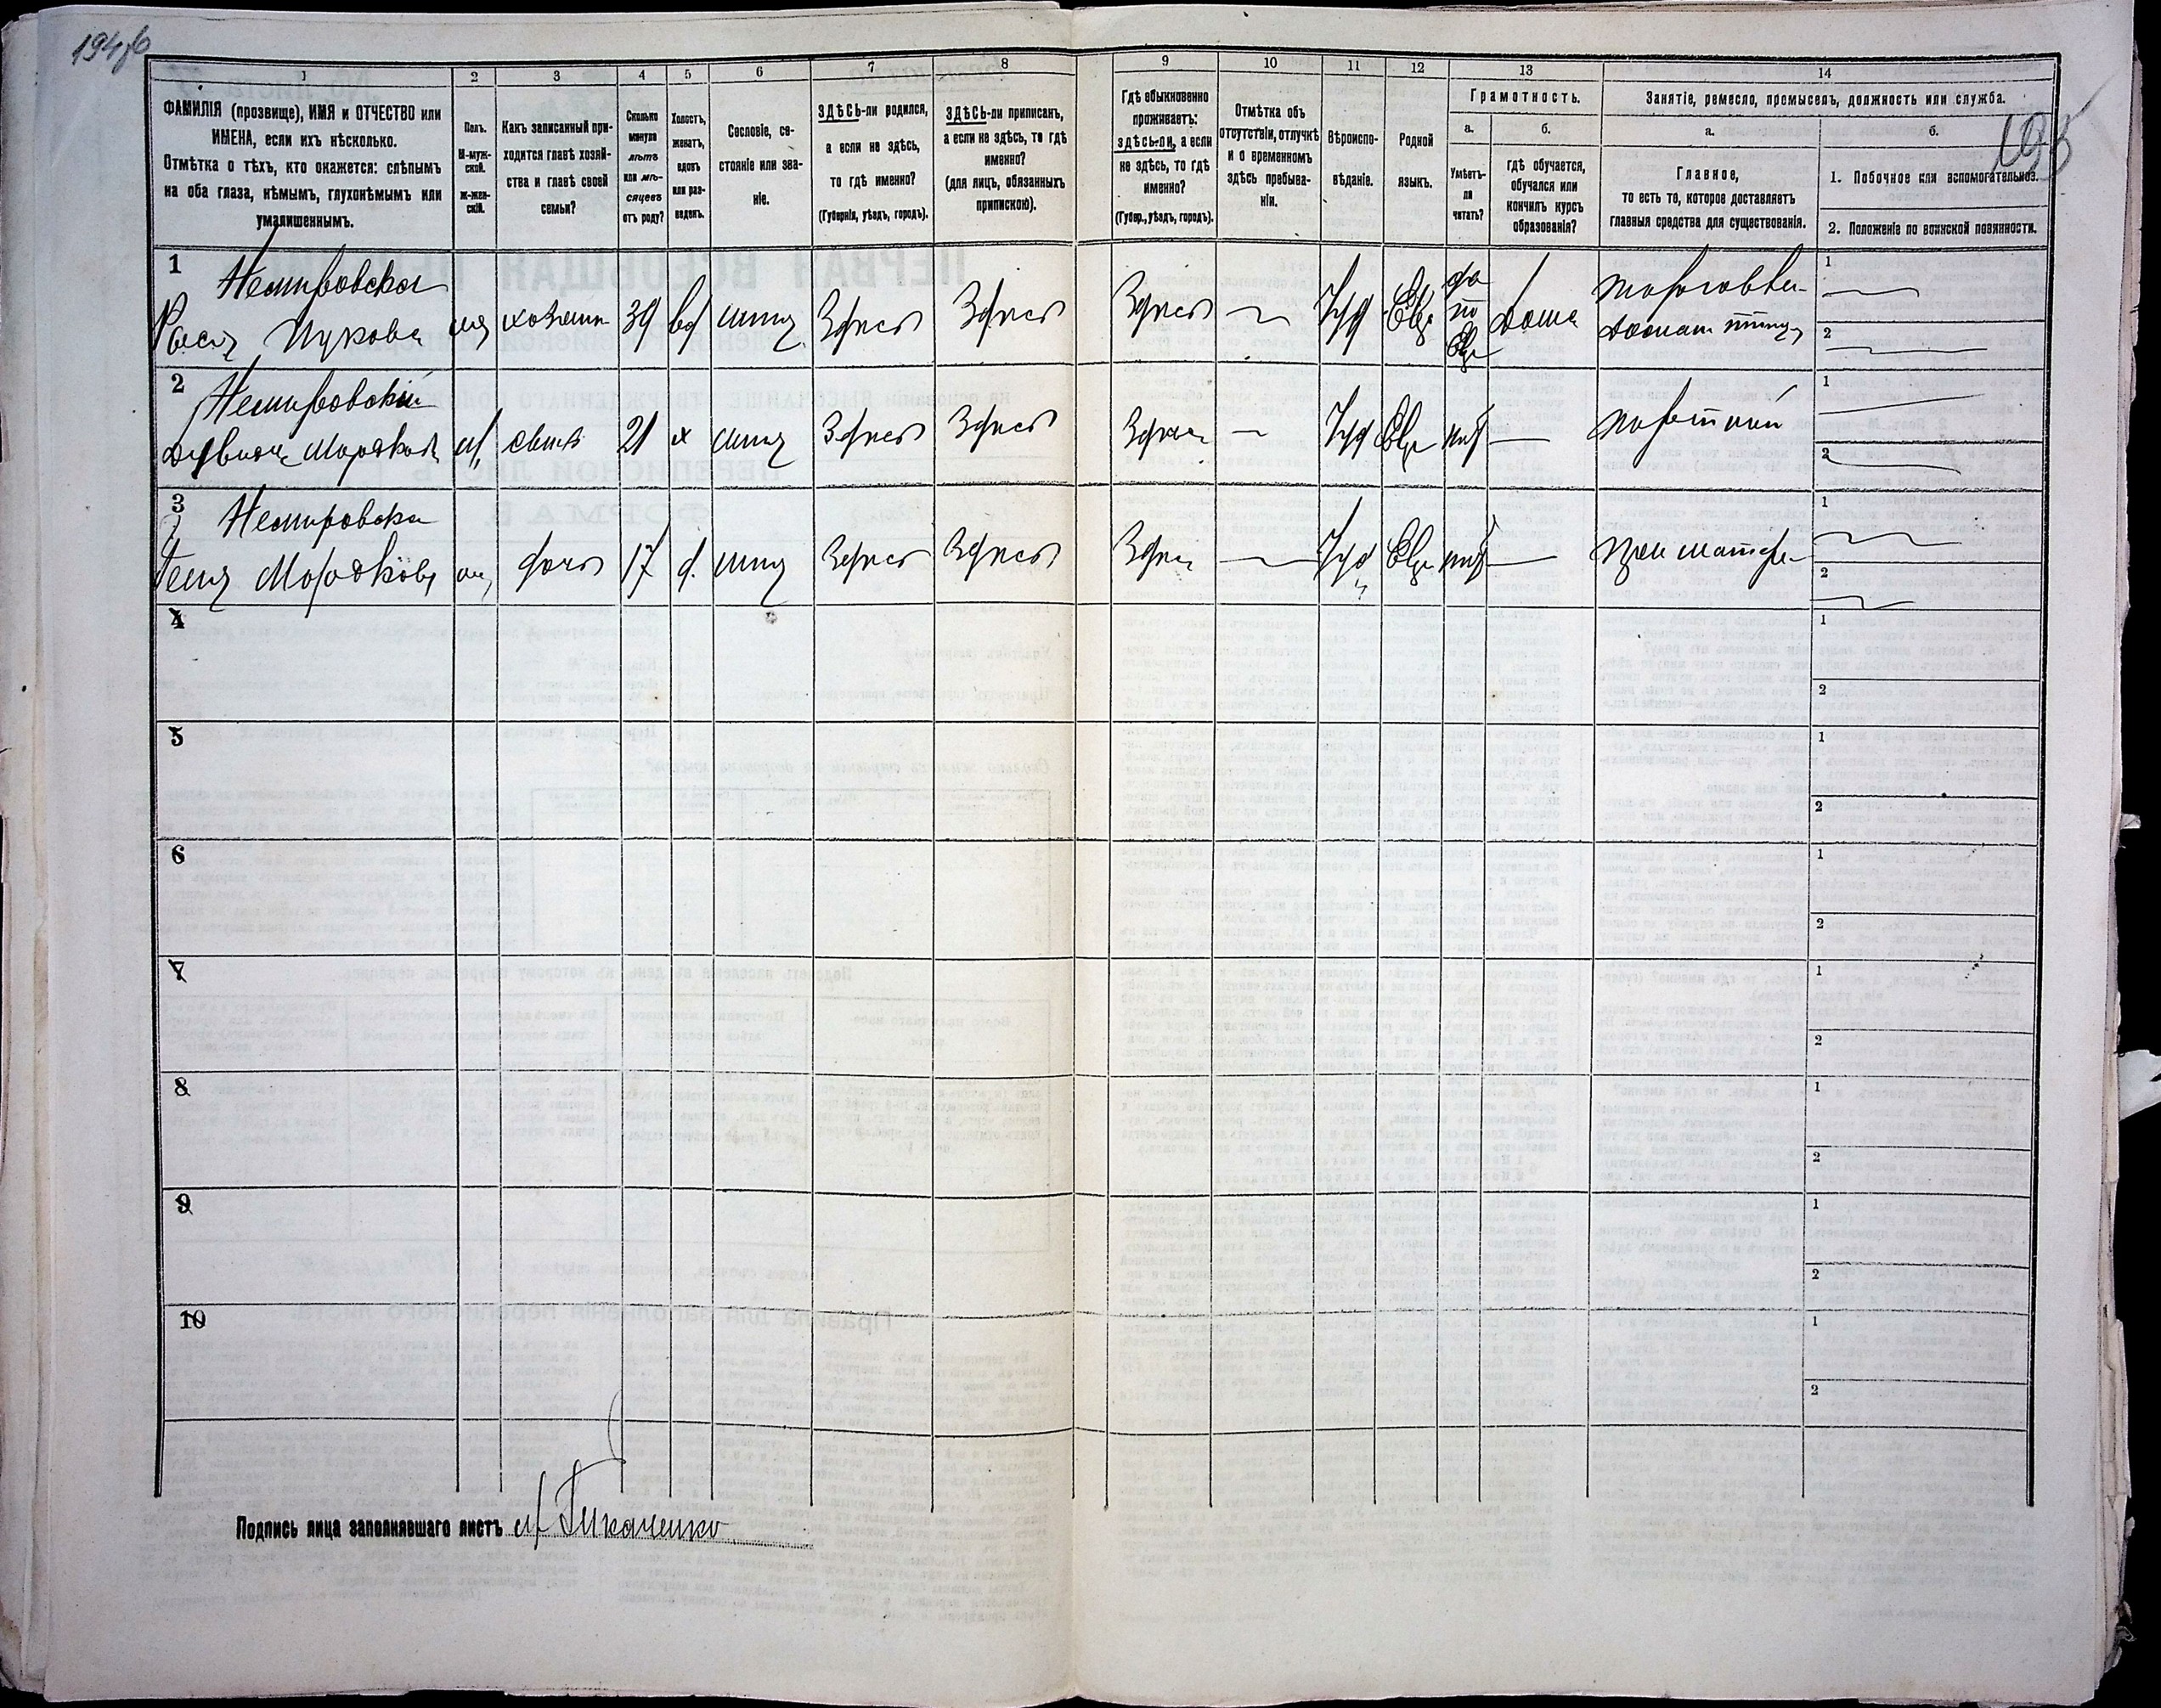 195
1 2 3 4 5 6 7 8 9 10 11 12 13 14
ФАМИЛІЯ (прозвище), ИМЯ и ОТЧЕСТВО или
ИМЕНА, если ихъ нѣсколько.
Отмѣтка о тѣхъ, кто окажется: слѣпымъ
на оба глаза, нѣмымъ, глухонѣмымъ или
умалишеннымъ.
Полъ.
М-муж-
ской.
Ж-жен-
скій.
Какъ записанный при-
ходится главѣ хозяй-
ства и главѣ своей
семьи?
Сколько
минуло
лѣтъ
или мѣ-
сяцевъ
отъ роду?
Холостъ,
женатъ,
вдовъ
или раз-
веденъ.
Сословіе, со-
стояніе или зва-
ніе.
ЗДѢСЬ-ли родился,
а если не здѣсь,
то гдѣ именно?
(Губернія, уѣздъ, городъ).
ЗДѢСЬ-ли приписанъ,
а если не здѣсь, то гдѣ
именно?
(для лицъ, обязанныхъ
припискою).
Гдѣ обыкновенно
проживаетъ:
здѣсь-ли, а если
не здѣсь, то гдѣ
именно?
(Губер., уѣздъ, городъ).
Отмѣтка объ
отсутствіи, отлучкѣ
и о временномъ
здѣсь пребыва-
ніи.
Вѣроиспо-
вѣданіе.
Родной
языкъ.
Грамотность.
а.
Умѣетъ-
ли
читать?
б.
гдѣ обучается,
обучался или
кончилъ курсъ
образованія?
Занятіе, ремесло, промыселъ, должность или служба.
а.
Главное,
то есть то, которое доставляетъ
главныя средства для существованія.
б.
1. Побочное или вспомогательное.
2. Положеніе по воинской повинности.
1 Немировска
хозяин 39 вд мещ Здѣсь Здѣсь Здѣсь — Іуд Евр да по Евр дома
1
2
2 Немировскій
м 21 х мещ Здѣсь Здѣсь Здѣсь — Іуд Евр нѣт — портной
1
2
3 Немировска
дочь 17 д. мещ Здѣсь Здѣсь Здѣсь — Іуд Евр нѣт — при матери
1
2
4
1
2
5
1
2
6
1
2
7
1
2
8
1
2
9
1
2
10
1
2
Подпись лица заполнявшаго листъ